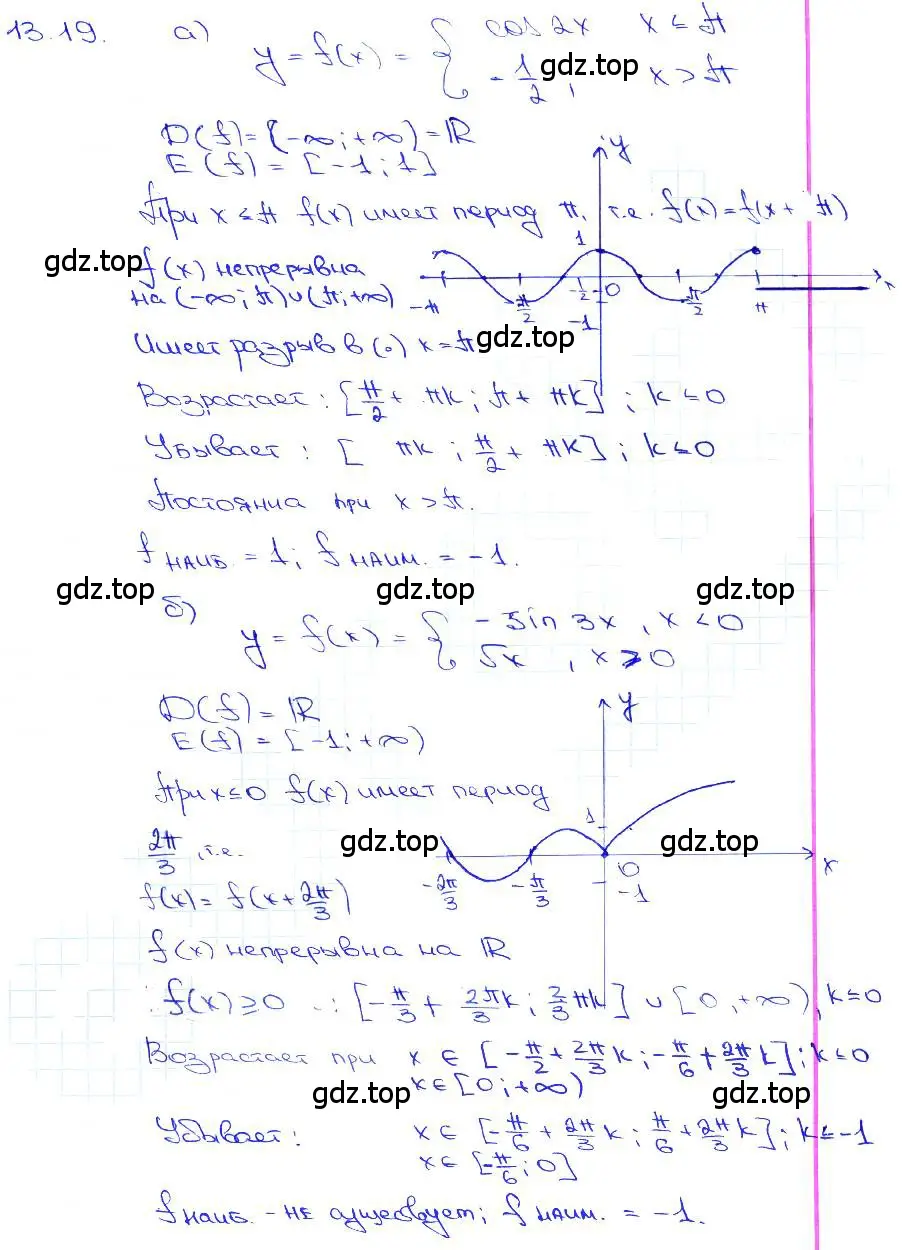 13.19. а) y = f(x) = { cos 2x x ≤ π
- 1/2 , x > π
gdz.top
D(f) = (-∞; +∞) = ℝ
E(f) = [-1; 1]
При x ≤ π f(x) имеет период π, т.е. f(x) = f(x + π)
y
1
-1/2
0
-1
-π
-π/2
π/2
π
x
gdz.top
f(x) непрерывна
на (-∞; π) ∪ (π; +∞)
Имеет разрыв в (·) x = π
gdz.top
Возрастает: [π/2 + πk; π + πk]; k ≤ 0
Убывает: [ πk ; π/2 + πk]; k ≤ 0
Постоянна при x > π.
f наиб. = 1; f наим. = -1.
gdz.top gdz.top gdz.top
б) y = f(x) = { -sin 3x , x < 0
√x , x ≥ 0
D(f) = ℝ
E(f) = [-1; +∞)
При x ≤ 0 f(x) имеет период
2π/3 , т.е.
f(x) = f(x + 2π/3)
y
1
0
-1
-2π/3
-π/3
x
gdz.top gdz.top
f(x) непрерывна на ℝ
f(x) ≥ 0 : [-π/3 + 2πk/3; 2/3 πk] ∪ [0, +∞), k ≤ 0
Возрастает при x ∈ [-π/2 + 2π/3 k; -π/6 + 2π/3 k]; k ≤ 0
x ∈ [0; +∞)
gdz.top gdz.top
Убывает: x ∈ [-π/6 + 2π/3 k; π/6 + 2π/3 k]; k ≤ -1
x ∈ [-π/6; 0]
f наиб. - не существует; f наим. = -1.